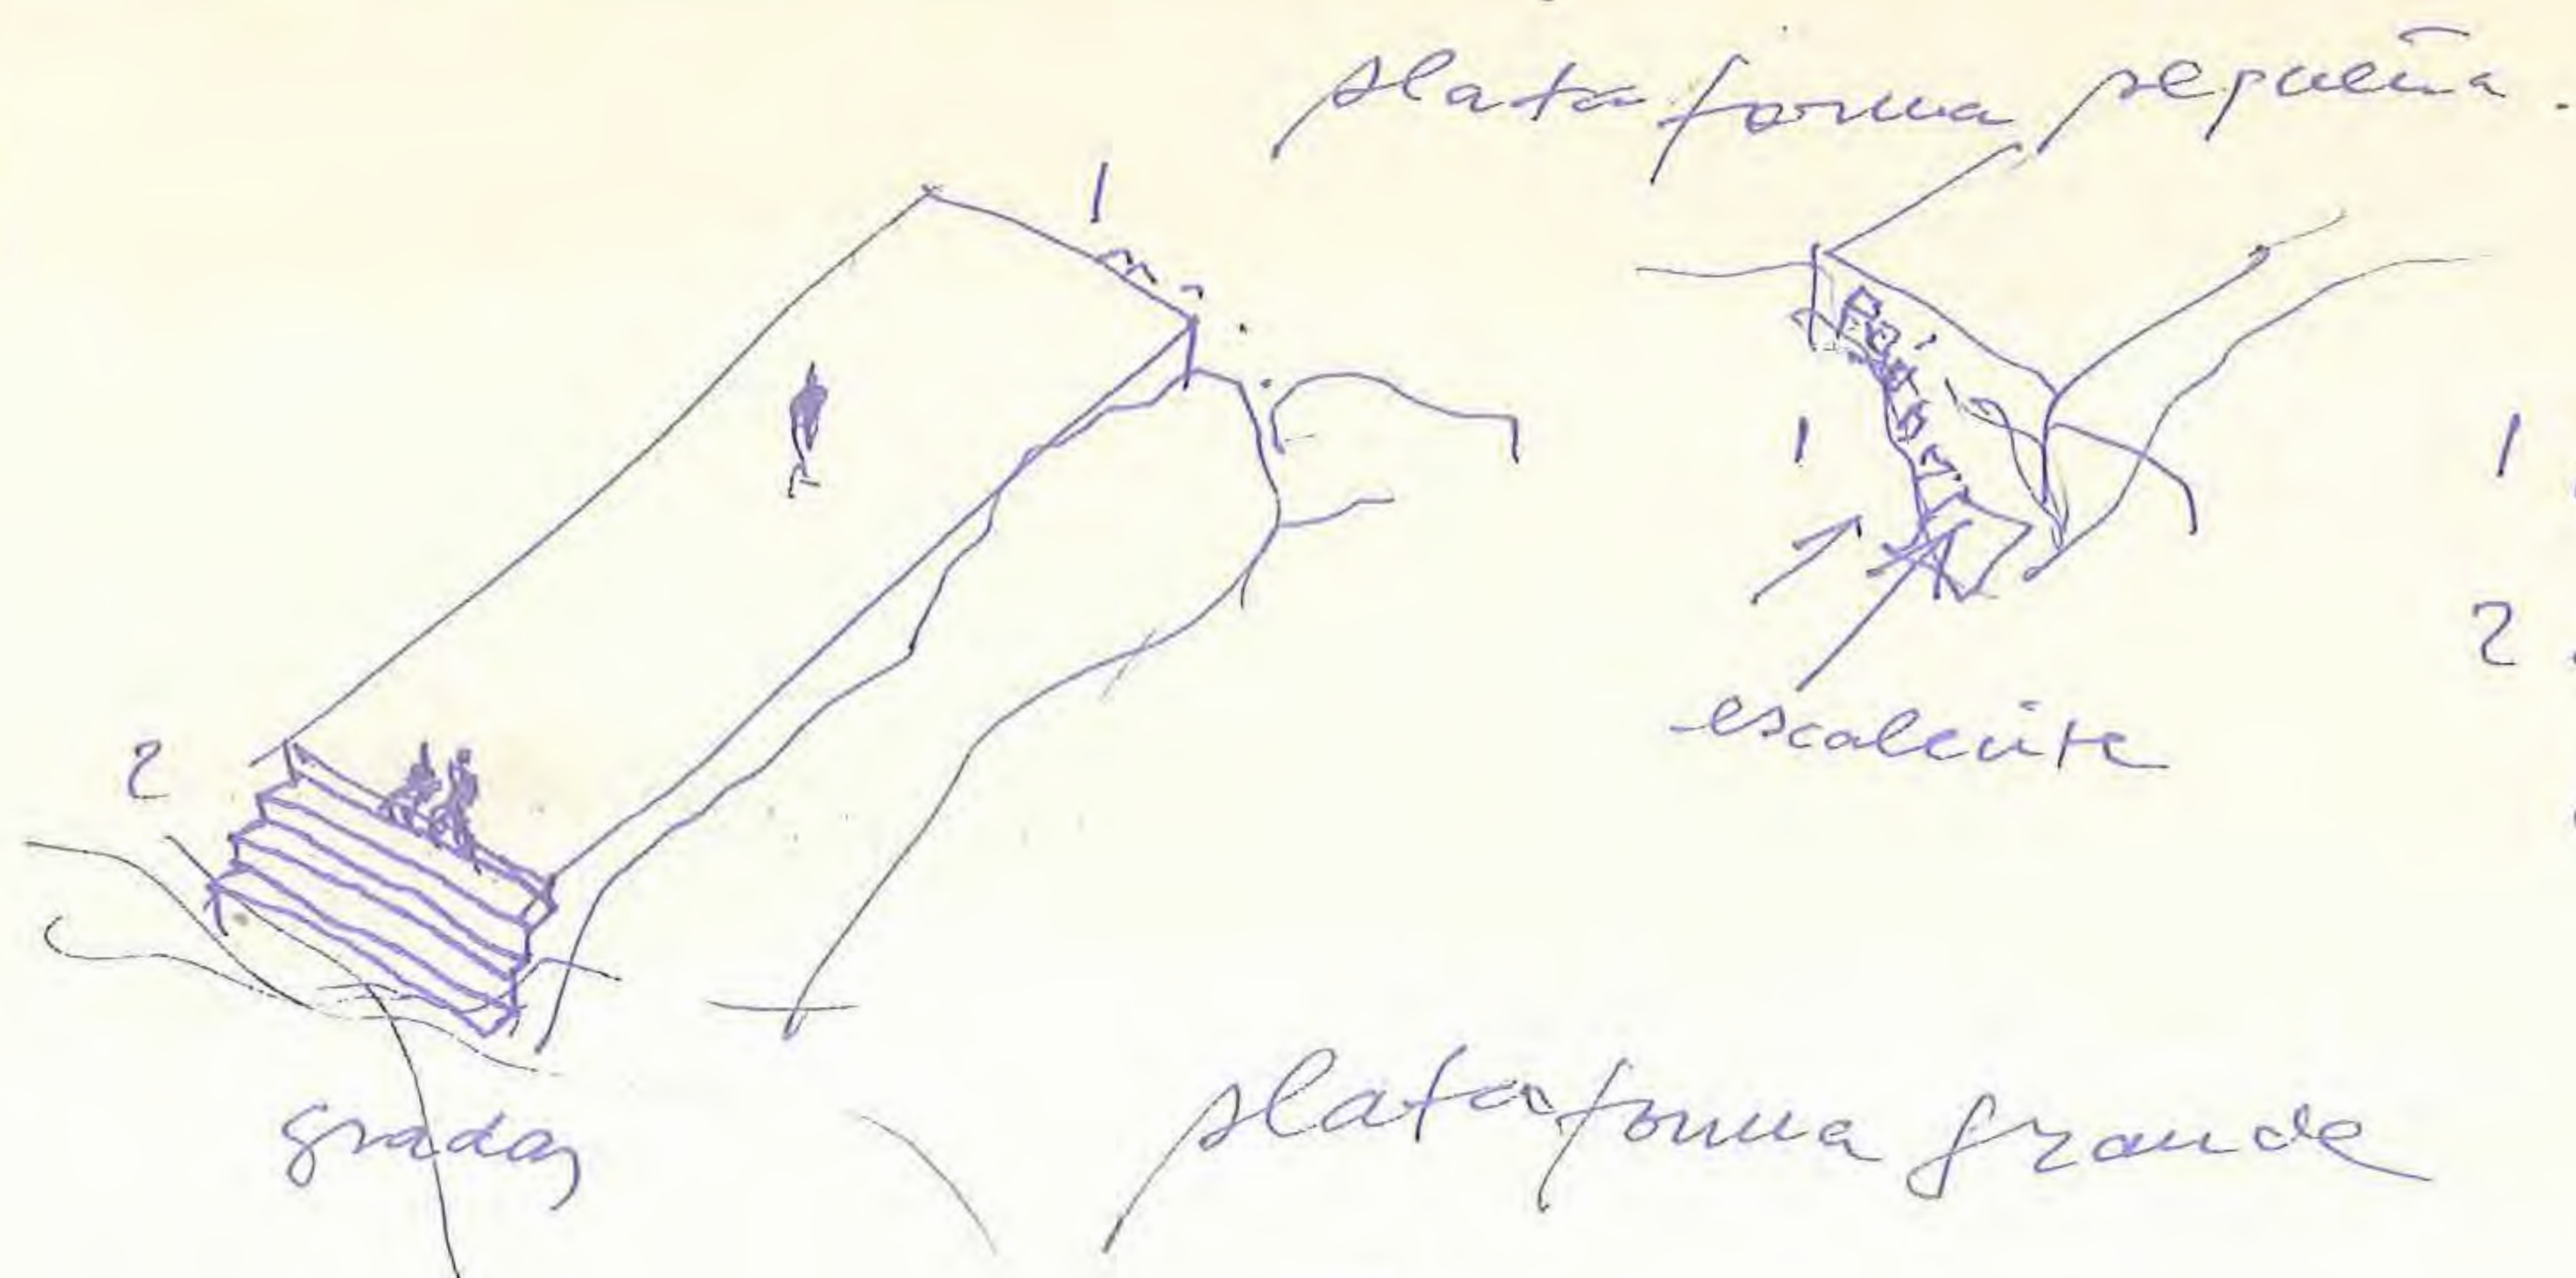 plataforma pequeña.
1
1
1
2
escaleira
2
gradas
plataforma grande